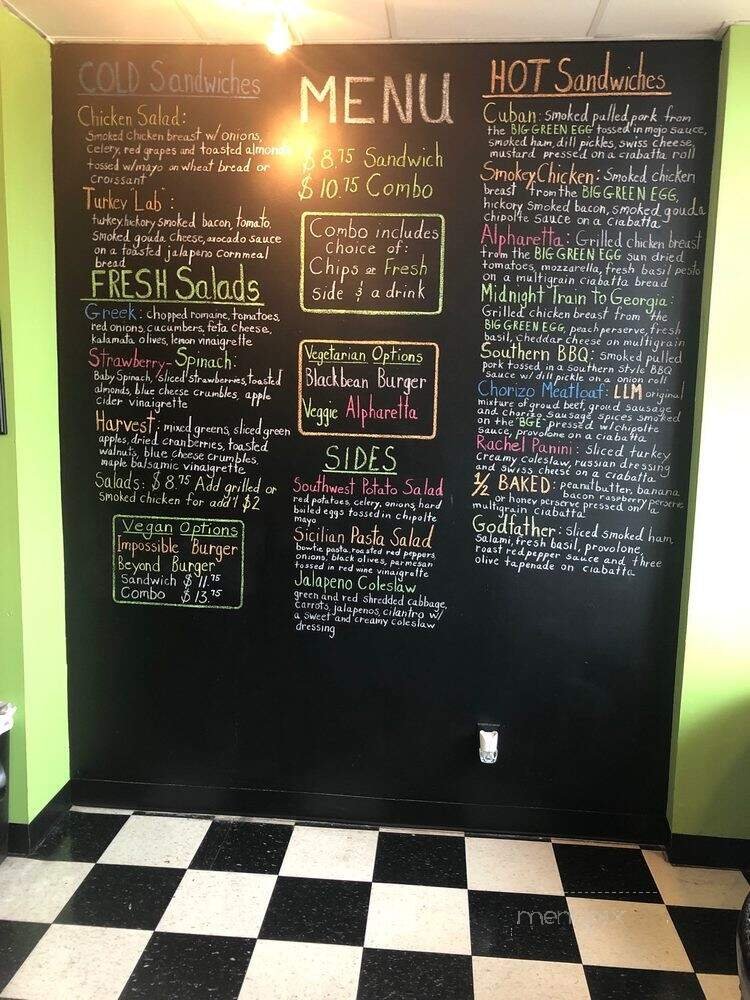 COLD Sandwiches
Chicken Salad:
Smoked chicken breast w/ onions,
celery, red grapes and toasted almonds
tossed w/mayo on wheat bread or
croissant
Turkey Lab:
turkey, hickory smoked bacon, tomato,
smoked gouda cheese, avocado sauce
on a toasted jalapeno cornmeal
bread
FRESH Salads
Greek: chopped romaine, tomatoes,
red onions, cucumbers, feta cheese,
kalamata olives, lemon vinaigrette
Strawberry-Spinach:
Baby Spinach, sliced strawberries, toasted
almonds, blue cheese crumbles, apple
cider vinaigrette
Harvest: mixed greens, sliced green
apples, dried cranberries, toasted
walnuts, blue cheese crumbles,
maple balsamic vinaigrette
Salads: $8.75 Add grilled or
smoked chicken for add'l $2
Vegan Options
Impossible Burger
Beyond Burger
Sandwich $11.75
Combo $13.75
MENU
$8.75 Sandwich
$10.75 Combo
Combo includes
choice of:
Chips or Fresh
side & a drink
Vegetarian Options
Blackbean Burger
Veggie Alpharetta
SIDES
Southwest Potato Salad
red potatoes, celery, onions, hard
boiled eggs tossed in chipolte
mayo
Sicilian Pasta Salad
bowtie pasta, roasted red peppers,
onions, black olives, parmesan
tossed in red wine vinaigrette
Jalapeno Coleslaw
green and red shredded cabbage,
carrots, jalapenos, cilantro w/
a sweet and creamy coleslaw
dressing
HOT Sandwiches
Cuban: smoked pulled pork from
the BIG GREEN EGG tossed in mojo sauce,
smoked ham, dill pickles, swiss cheese,
mustard pressed on a ciabatta roll
Smokey Chicken: Smoked chicken
breast from the BIG GREEN EGG,
hickory smoked bacon, smoked gouda
chipolte sauce on a ciabatta
Alpharetta: Grilled chicken breast
from the BIG GREEN EGG sun dried
tomatoes, mozzarella, fresh basil pesto
on a multigrain ciabatta bread
Midnight Train to Georgia:
Grilled chicken breast from the
BIG GREEN EGG, peach perserve, fresh
basil, cheddar cheese on multigrain
Southern BBQ: smoked pulled
pork tossed in a southern style BBQ
sauce w/ dill pickle on a onion roll
Chorizo Meatloaf: LLM original
mixture of groud beef, groud sausage
and chorizo sausage spices smoked
on the "BGE" pressed w/chipolte
sauce, provolone on a ciabatta
Rachel Panini: sliced turkey
creamy coleslaw, russian dressing
and swiss cheese on a ciabatta
1/2 BAKED: peanutbutter, banana
bacon raspberry perserve
or honey perserve pressed on a
multigrain ciabatta
Godfather: sliced smoked ham,
salami, fresh basil, provolone,
roast red pepper sauce and three
olive tapenade on ciabatta